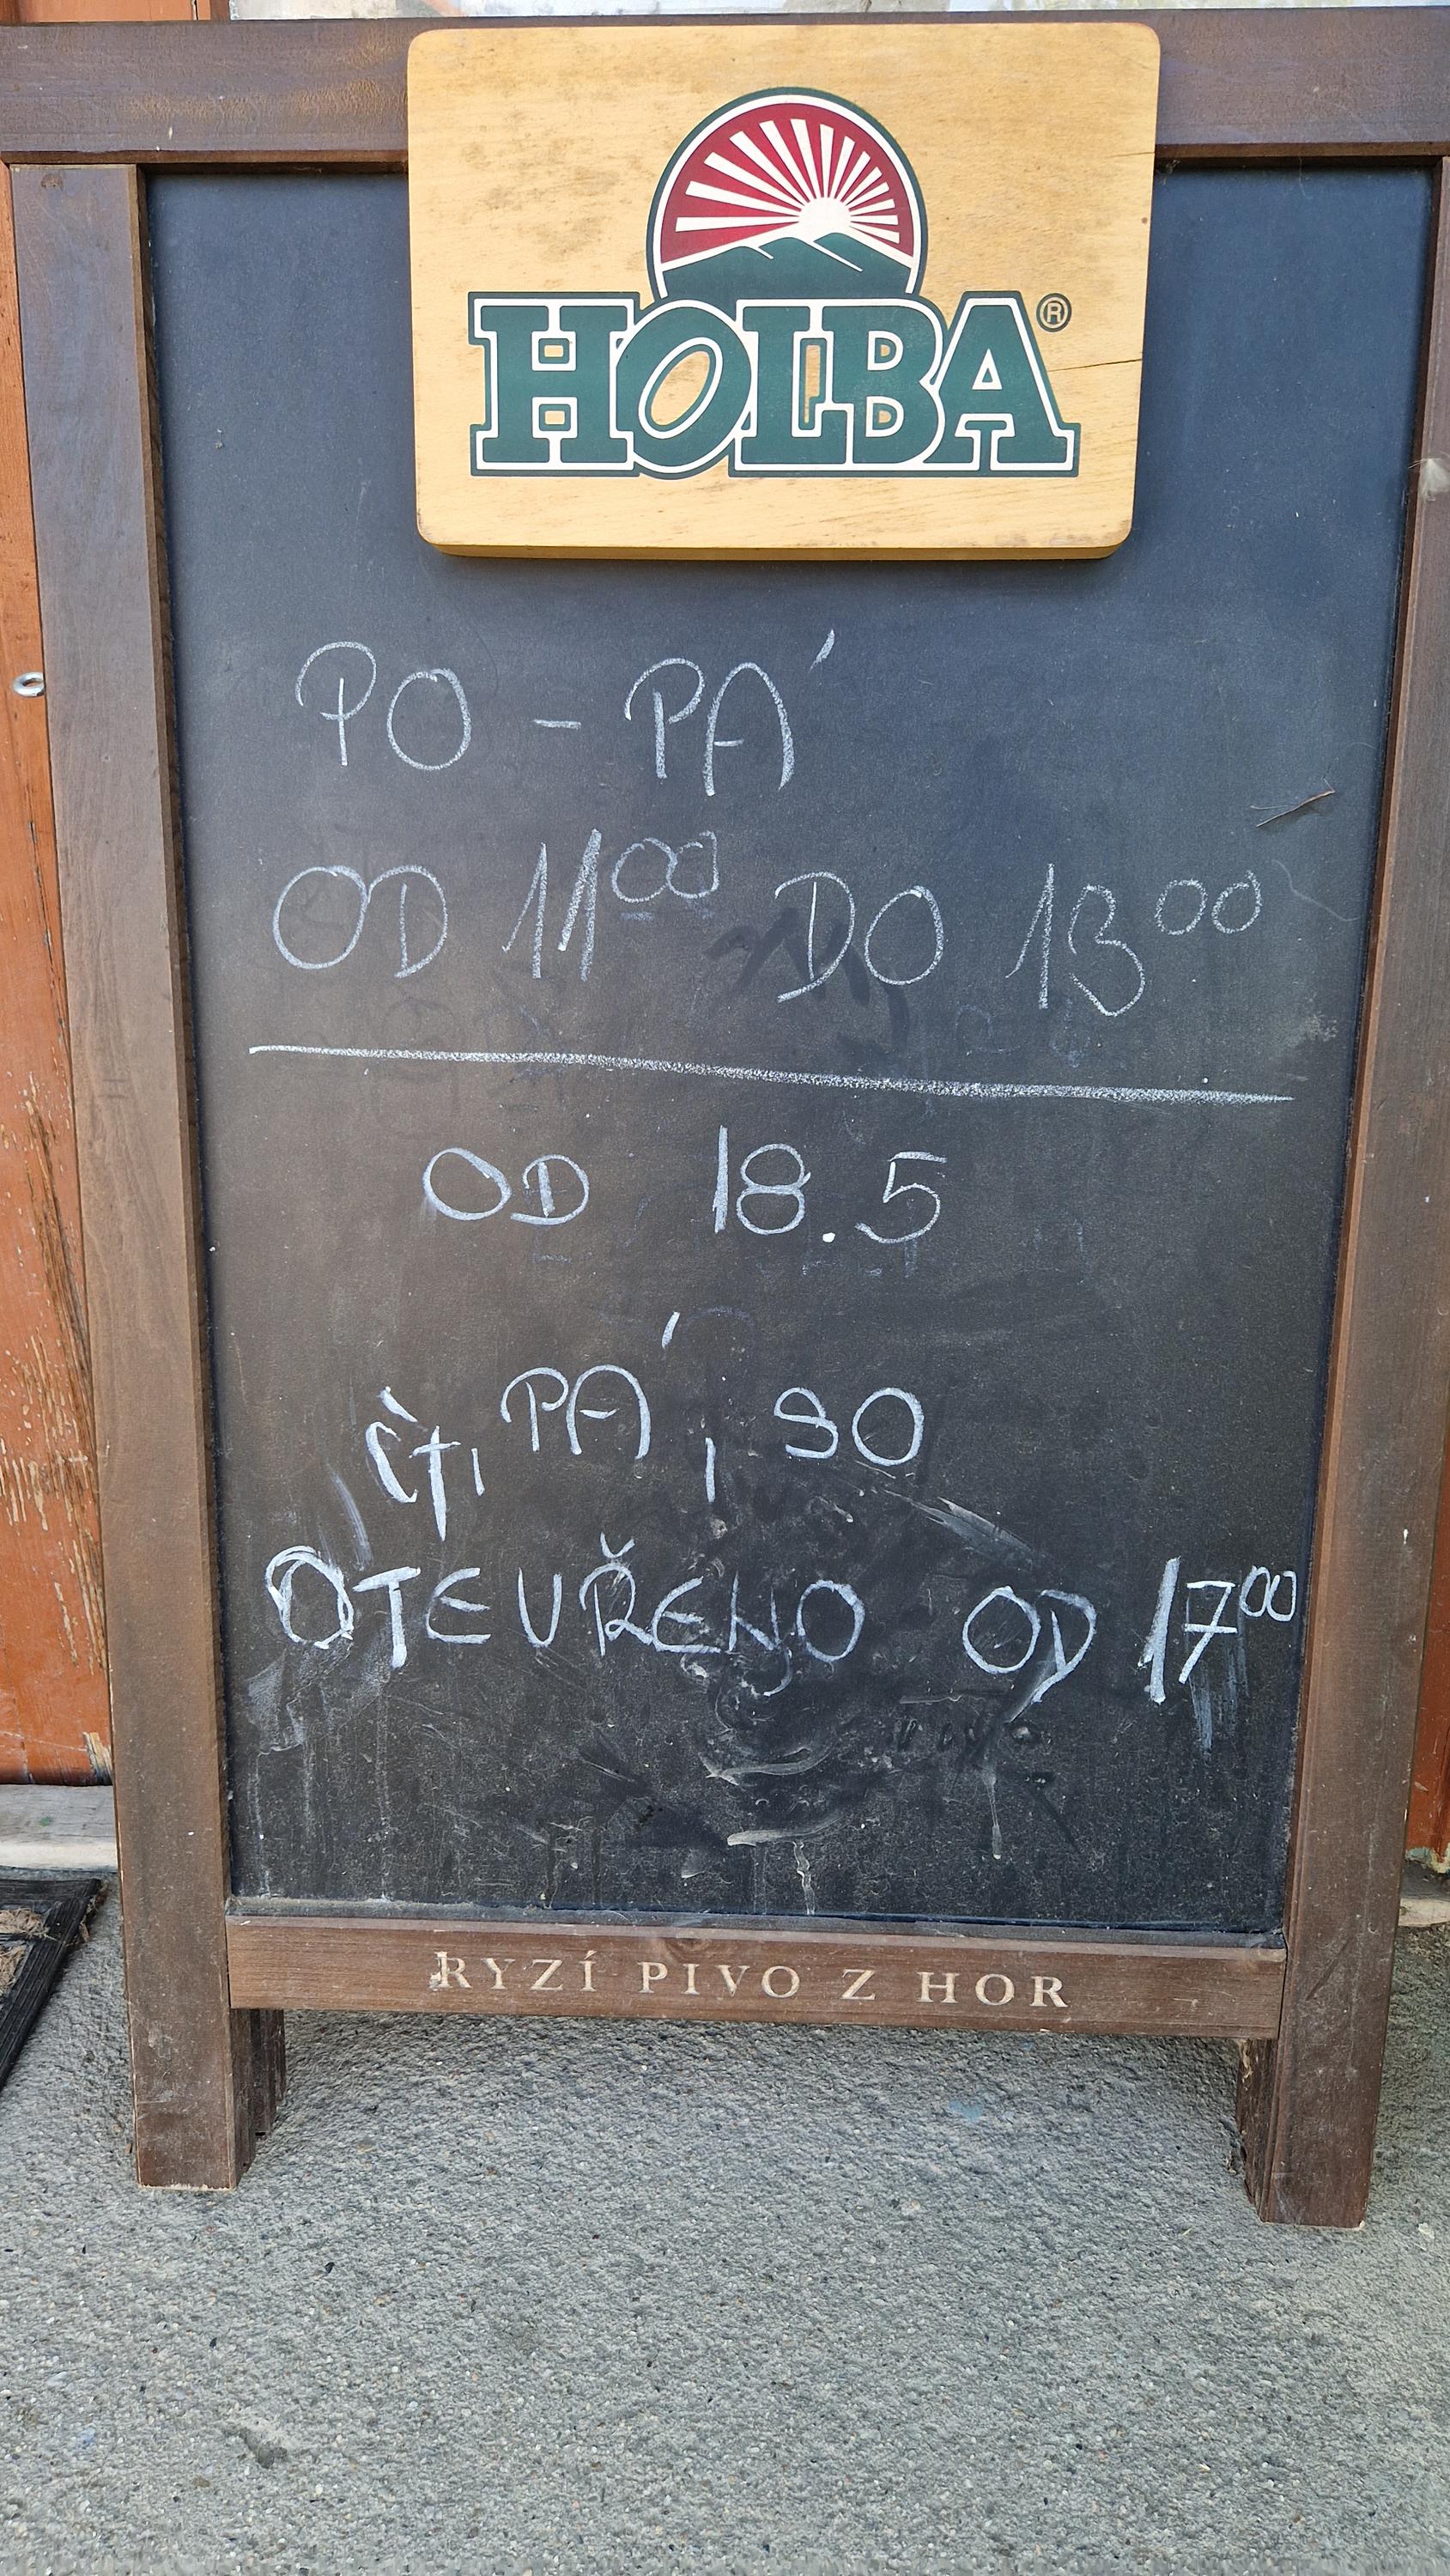 HOLBA®
PO - PÁ
OD 11⁰⁰ DO 13⁰⁰
OD 18.5
ČT, PÁ, SO
OTEVŘENO OD 17⁰⁰
RYZÍ PIVO Z HOR